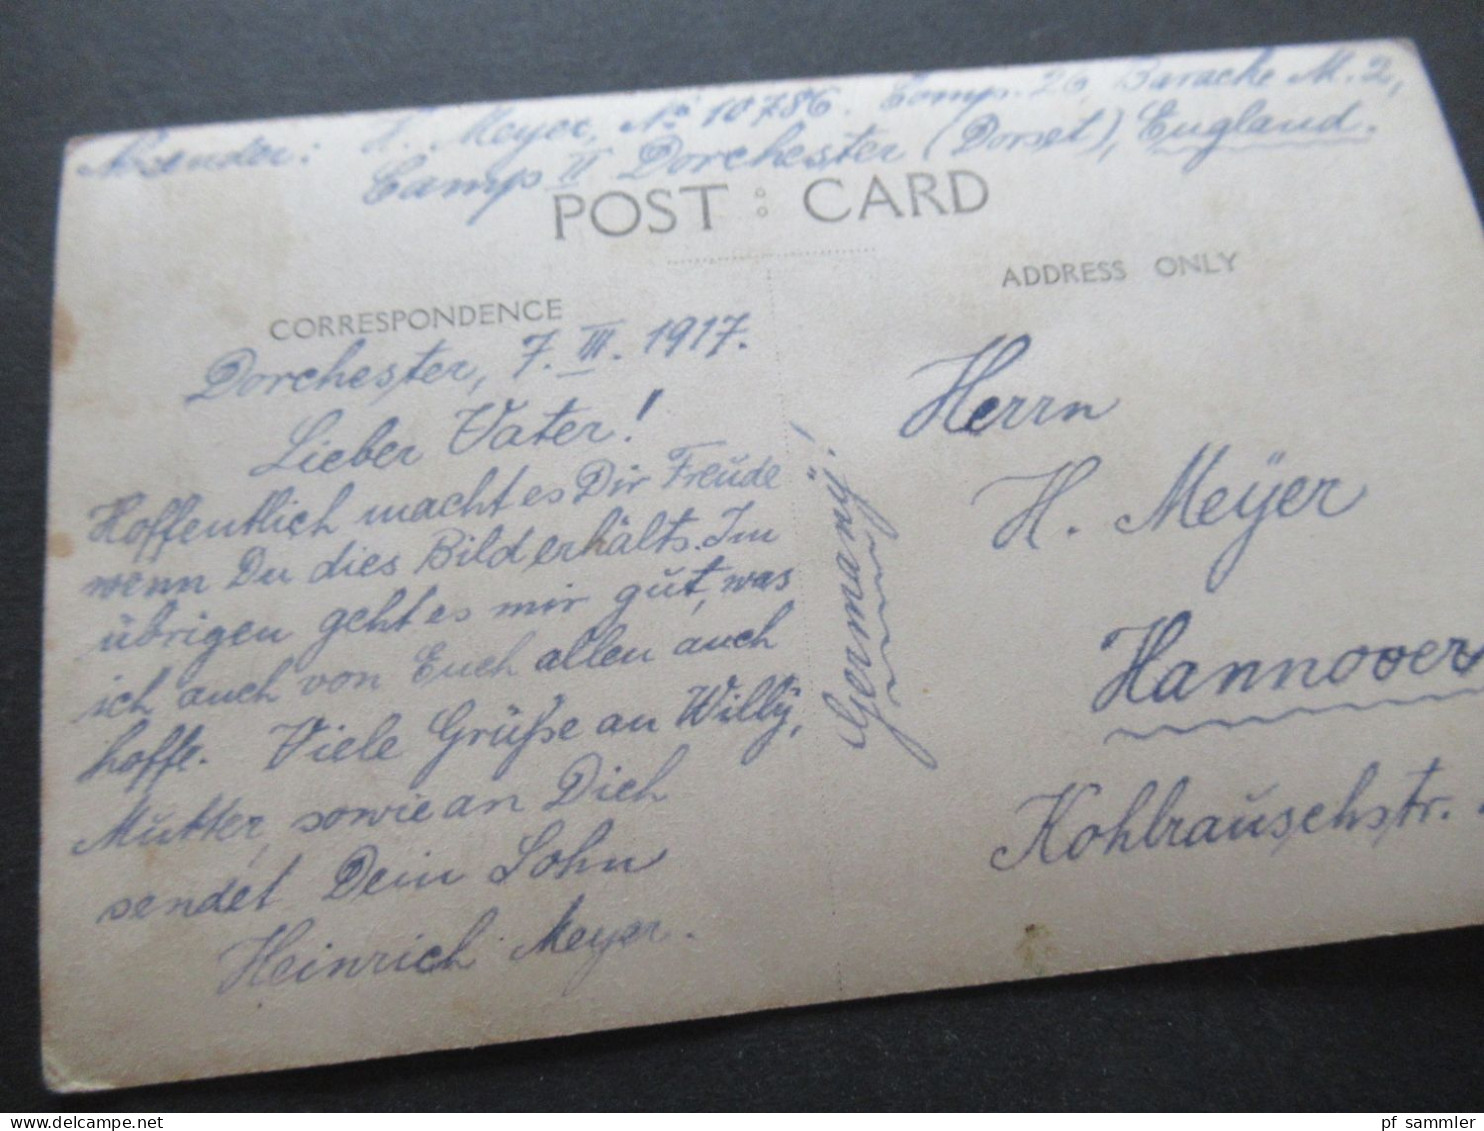 Absender: H. Meyer, No 10786. Comp. 26, Baracke M. 2,
Camp II Dorchester (Dorset), England.
POST CARD
CORRESPONDENCE
ADDRESS ONLY
Dorchester, 7. III. 1917.
Lieber Vater!
Hoffentlich macht es Dir Freude
wenn Du dies Bild erhälts. Im
übrigen geht es mir gut, was
ich auch von Euch allen auch
hoffe. Viele Grüße an Willy,
Mutter, sowie an Dich
sendet Dein Sohn
Heinrich Meyer.
Germany!
Herrn
H. Meyer
Hannover
Kohlrauschstr.
pf sammler